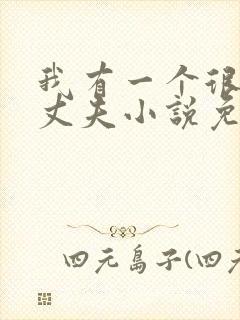 我有一个很
丈夫小說免
四元島子(四元